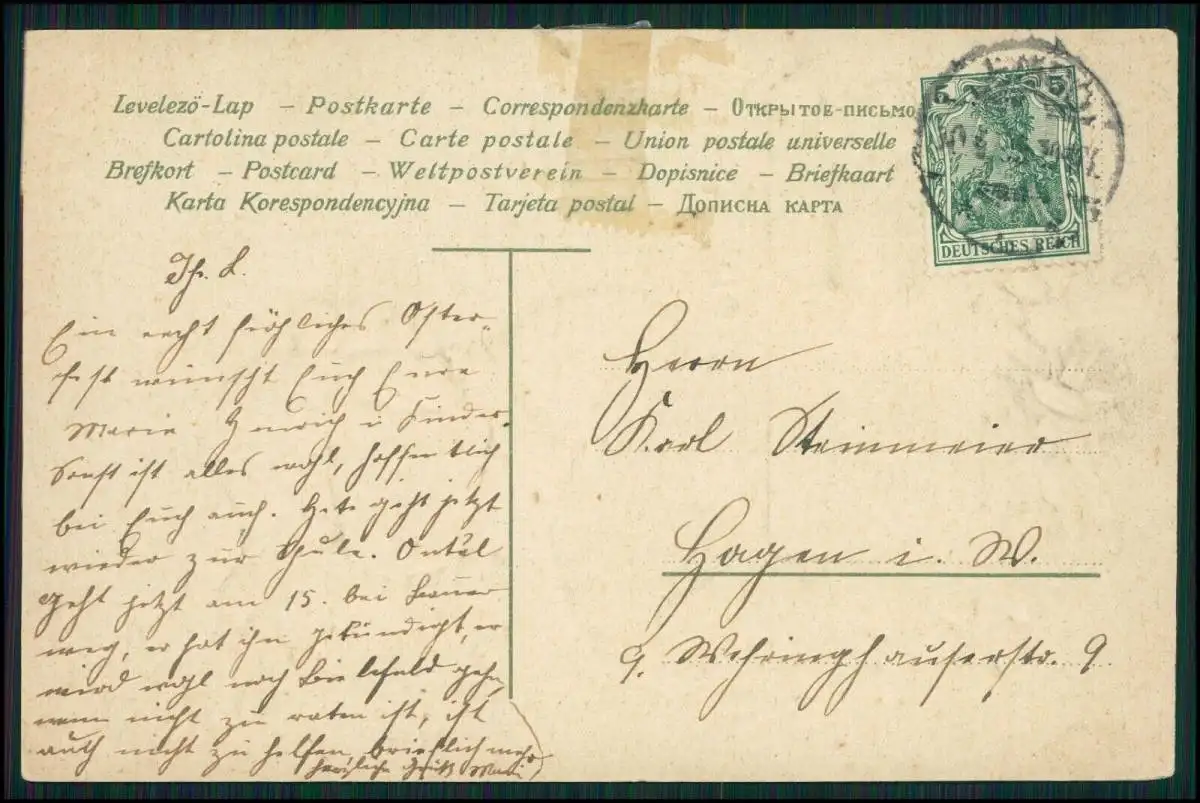 Levelező-Lap – Postkarte – Correspondenzkarte – Открытое-письмо
Cartolina postale – Carte postale – Union postale universelle
Brefkort – Postcard – Weltpostverein – Dopisnice – Briefkaart
Karta Korespondencyjna – Tarjeta postal – Дописна карта
5 5
DEUTSCHES REICH
Ein recht fröhliches Oster-
fest wünscht Euch Eure
Marie Heinrich u Kinder.
Sonst ist alles wohl, hoffentlich
bei Euch auch. geht jetzt
wieder zur Schule. Onkel
geht jetzt am 15. bei Bauer
weg, er hat ihn gekündigt, er
wird wohl nach Bielefeld gehn,
wem nicht zu raten ist, ist
auch nicht zu helfen, brieflich mehr
herzliche Grüße Marie
Herrn
Karl Steinmeier
Hagen i. W.
9 Wehringhauserstr. 9